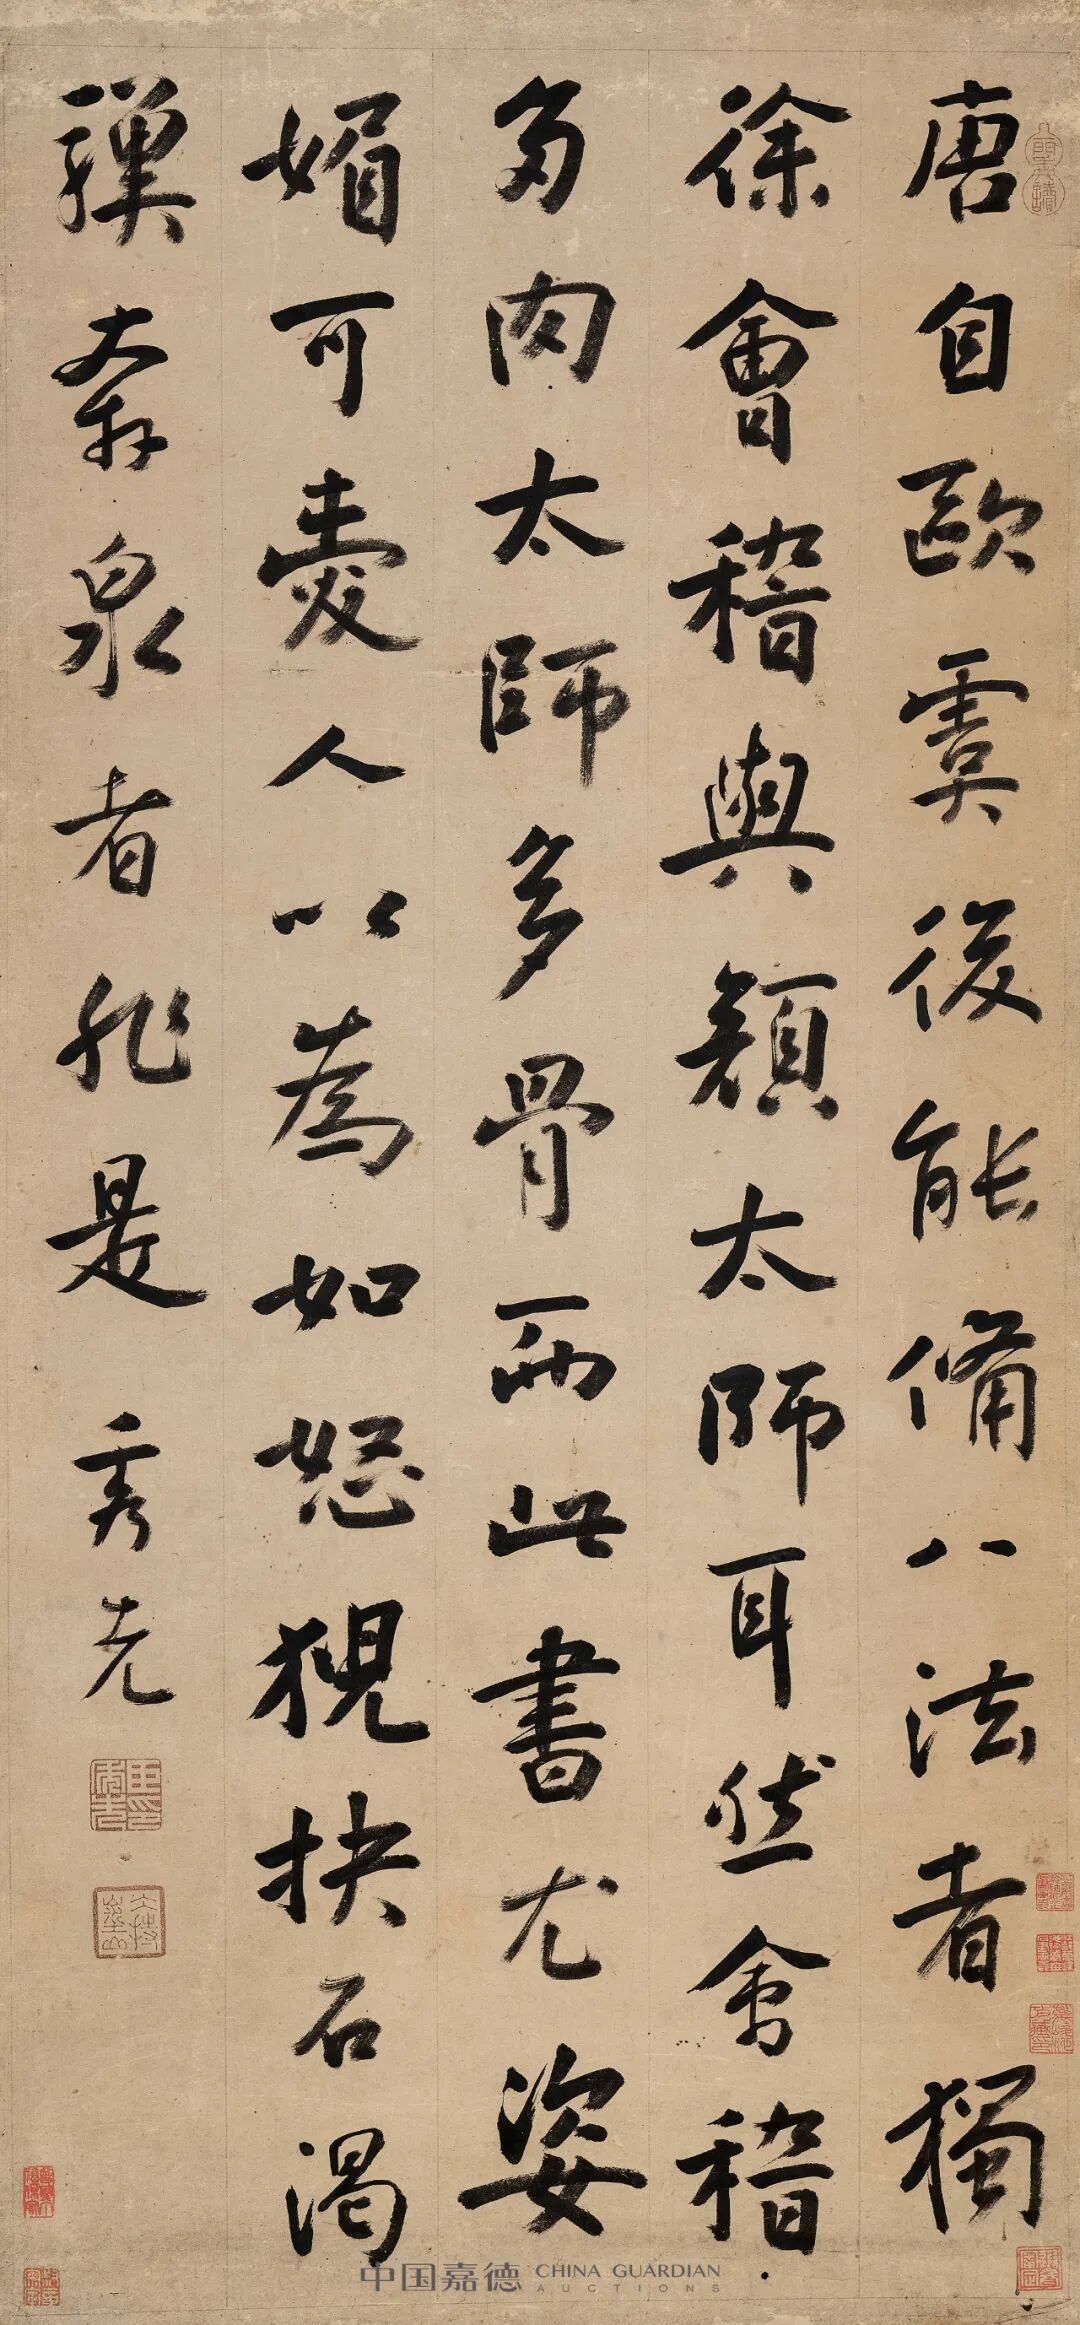 唐自歐虞後能備八法者獨
徐會稽與顏太師耳然會稽
多肉太師多骨而此書尤姿
媚可愛人以為如怒猊抉石渴
驥奔泉者非是 秀先
中国嘉德 CHINA GUARDIAN
AUCTIONS